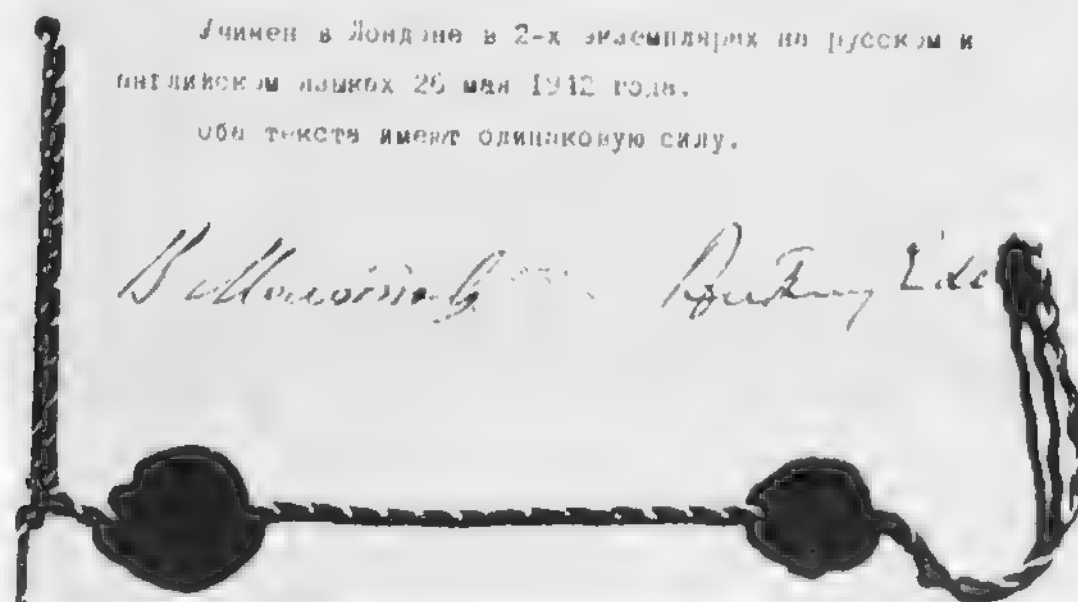 Учинен в Лондоне в 2-х экземплярах на русском и
английском языках 26 мая 1942 года.
Оба текста имеют одинаковую силу.
В Молотов Anthony Eden